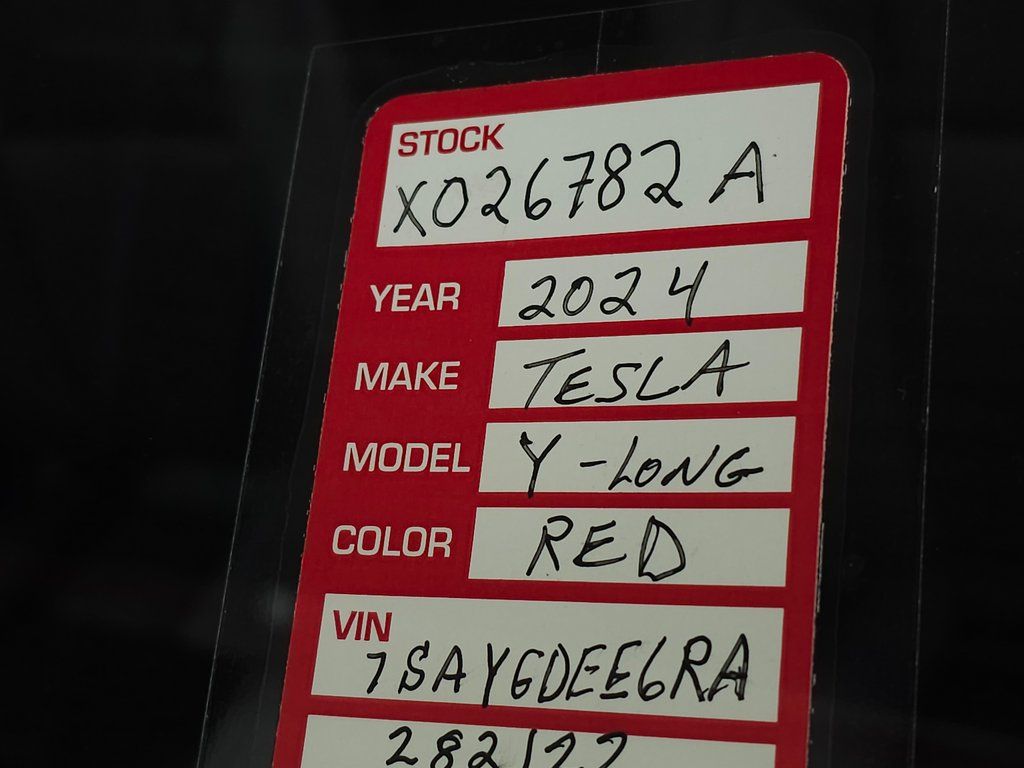 STOCK
X026782A
YEAR 2024
MAKE TESLA
MODEL Y-LONG
COLOR RED
VIN
7SAYGDEE6RA
282122